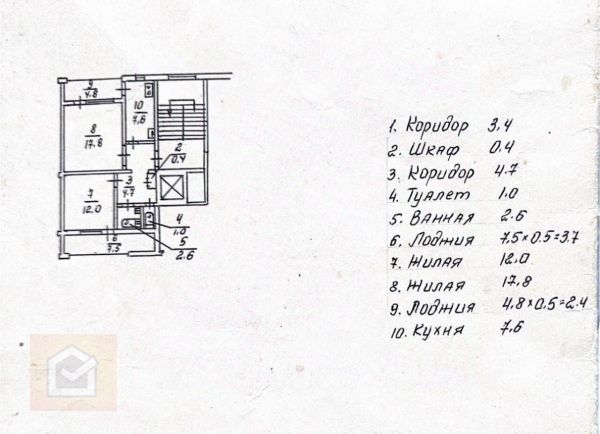 9
4.8
10
7.6
8
17.8
2
0.4
3
4.7
7
12.0
4
1.0
6
7.5
5
2.6
1. Коридор 3,4
2. Шкаф 0.4
3. Коридор 4.7
4. Туалет 1.0
5. Ванная 2.6
6. Лоджия 7,5×0.5=3.7
7. Жилая 12,0
8. Жилая 17,8
9. Лоджия 4,8×0,5=2.4
10. Кухня 7,6